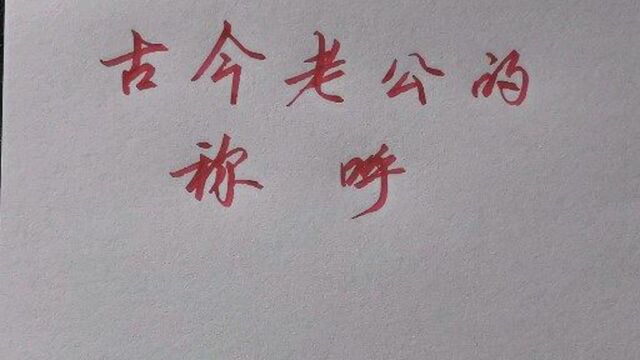 古今老公的
称呼